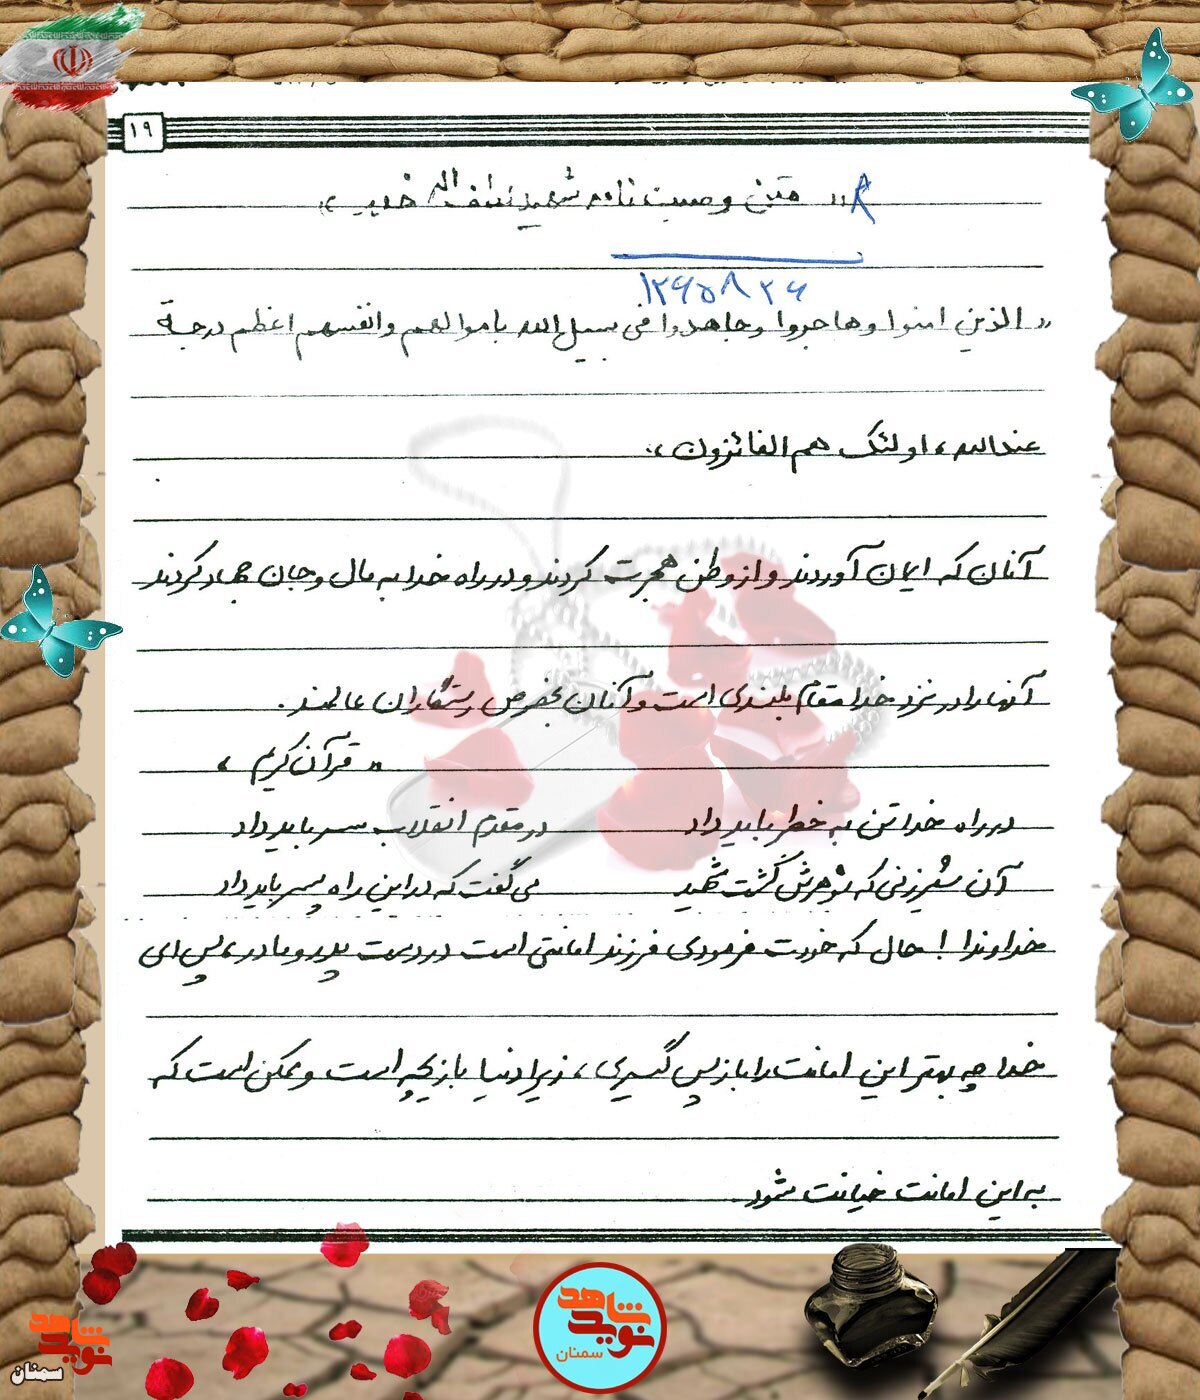 ۱۹
« متن وصیت نامه شهید لطف الله خدیر »
۱۲۶۵۸۲۶
« الذین امنوا و هاجروا و جاهدوا فی سبیل الله باموالهم و انفسهم اعظم درجة
عندالله ، اولئک هم الفائزون ».
آنان که ایمان آوردند و از وطن هجرت کردند و در راه خدا به مال و جان جهاد کردند
آنها را در نزد خدا مقام بلندی است و آنان بخصوص رستگاران عالمند .
« قرآن کریم »
در راه خدا تن به خطر باید داد در مقدم انقلاب سر باید داد
آن شیرزنی که شوهرش گشت شهید می گفت که در این راه پسر باید داد
خداوندا ! حال که خودت فرمودی فرزند امانتی است در دست پدر و مادر ، پس ای
خدا چه بهتر این امانت را باز پس گیری ، زیرا دنیا بازیچه است و ممکن است که
به این امانت خیانت شود
نوید شاهد
سمنان
نوید شاهد
سمنان